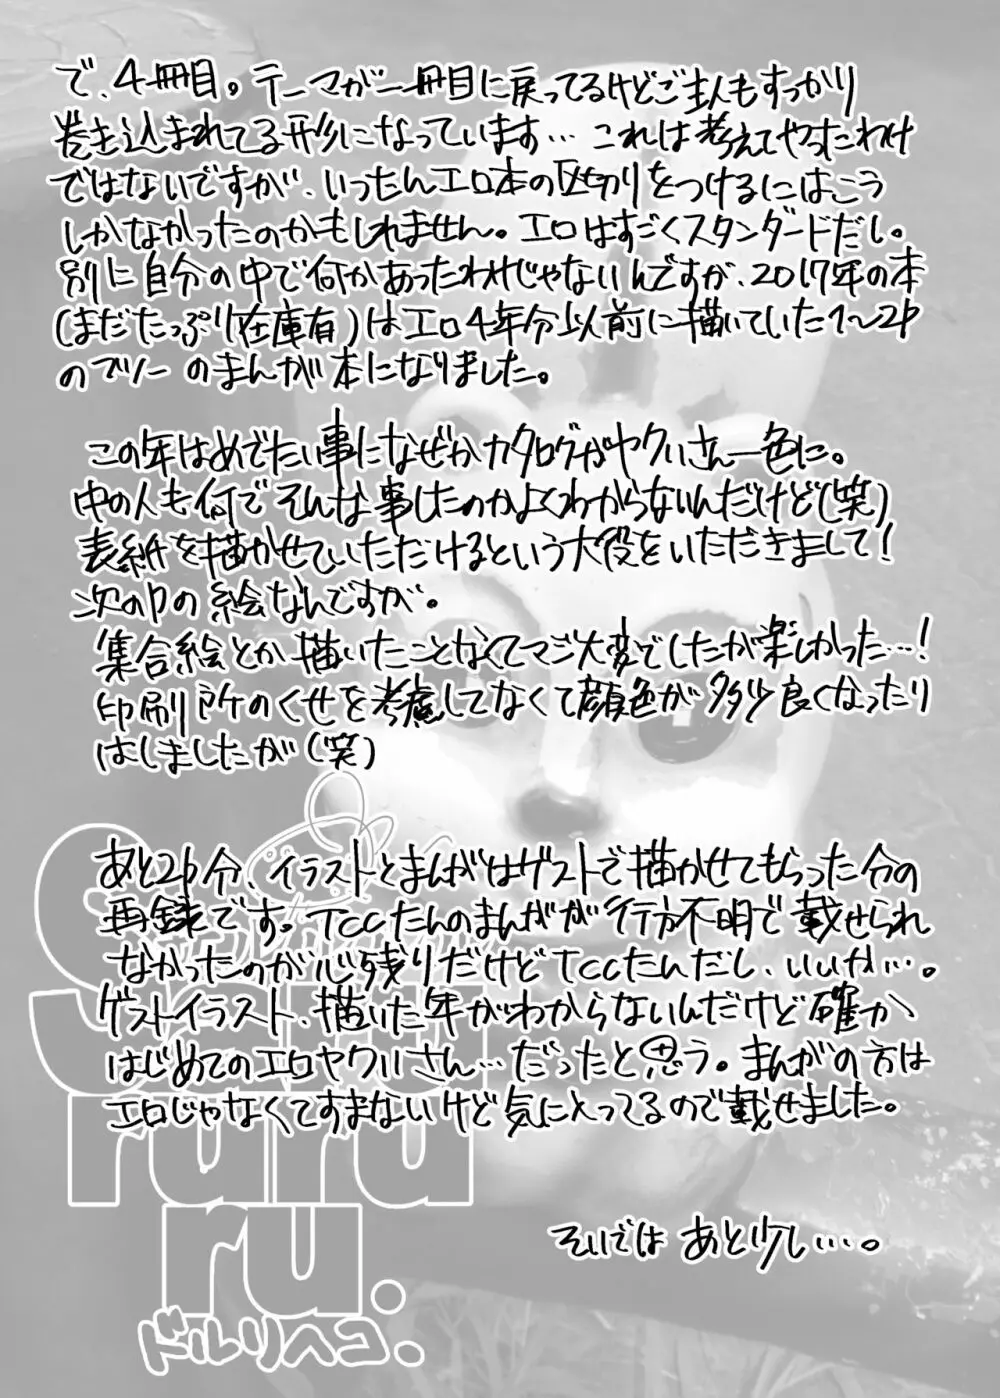 で、4冊目。テーマが一冊目に戻ってるけどご主人もすっかり
巻き込まれてる形になっています… これは考えてやったわけ
ではないですが、いったんエロ本の区切りをつけるにはこう
しかなかったのかもしれません。エロはすごくスタンダードだし。
別に自分の中で何かあったわけじゃないんですが、2017年の本
(まだたっぷり在庫有)はエロ4年分以前に描いていた1〜2P
のマンガ のまんが本になりました。
この年はめでたい事になぜかカタログがヤクルさん一色に。
中の人も何でそんな事したのかよくわからないんだけど(笑)
表紙を描かせていただけるという大役をいただきまして!
次のPの絵なんですが。
集合絵とか描いたことなくてマジ大変でしたが楽しかった…!
印刷所のくせを考慮してなくて顔色が多少良くなったり
はしましたが(笑)
あと2P分、イラストとまんがはゲストで描かせてもらった分の
再録です。TCCたんのまんがが行方不明で載せられ
なかったのが心残りだけどTCCたんだし、いいか…。
ゲストイラスト、描いた年がわからないんだけど確か
はじめてのエロヤクルさん…だったと思う。まんがの方は
エロじゃなくてすまないけど気に入ってるので載せました。
そいでは あと少し…。
ruru
ru.
ドルリヘコ.